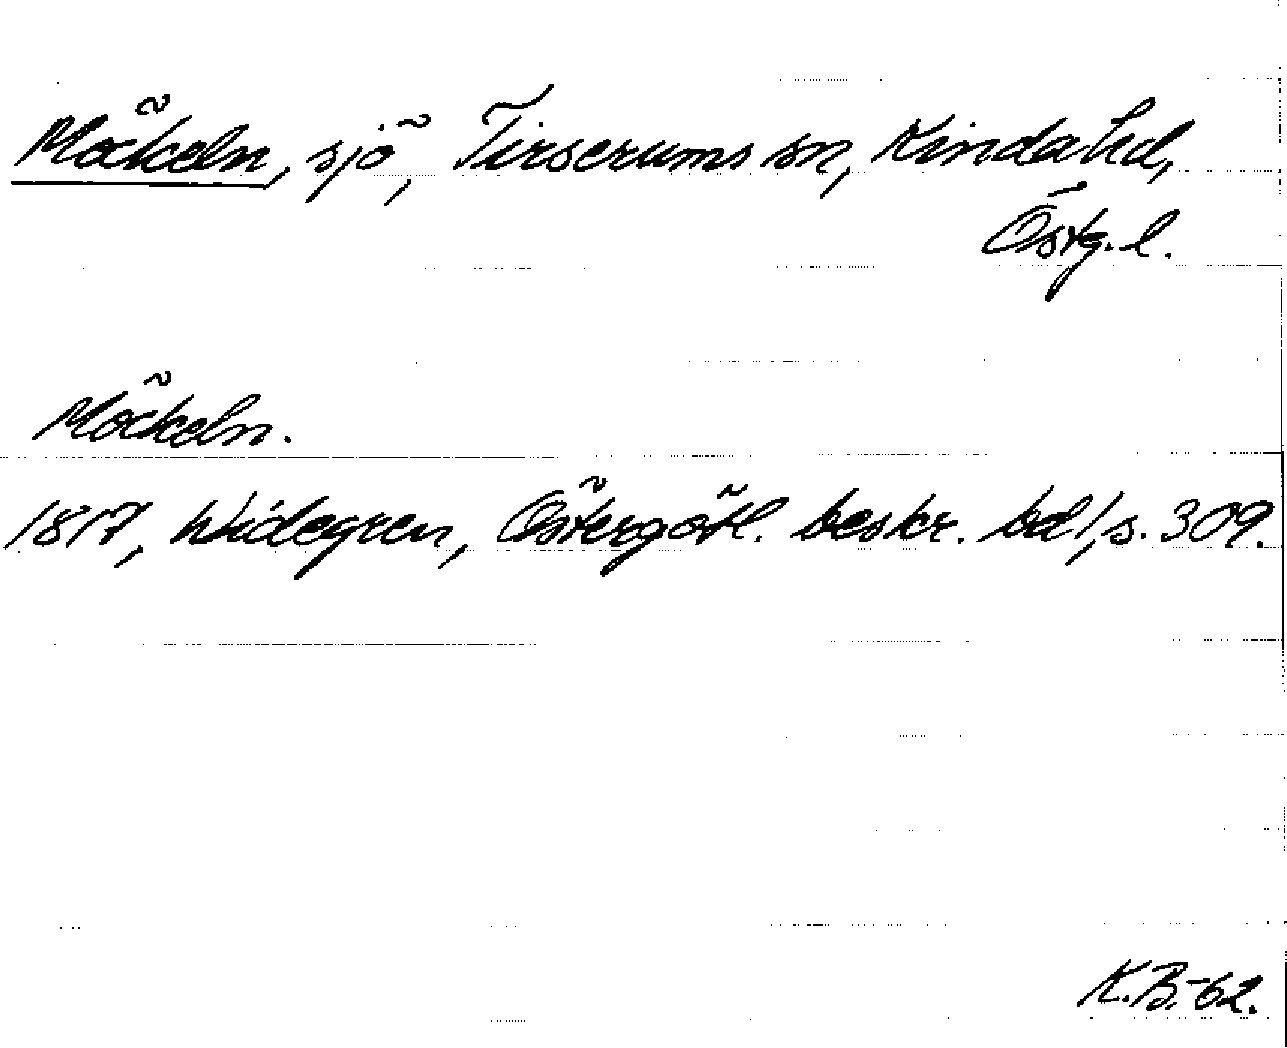 Möckeln, sjö, Tirserums sn, Kinda hd,
Östg. l.
Möckeln.
1817, Widegren, Östergötl. beskr. bd 1, s. 309.
K.B.-62.